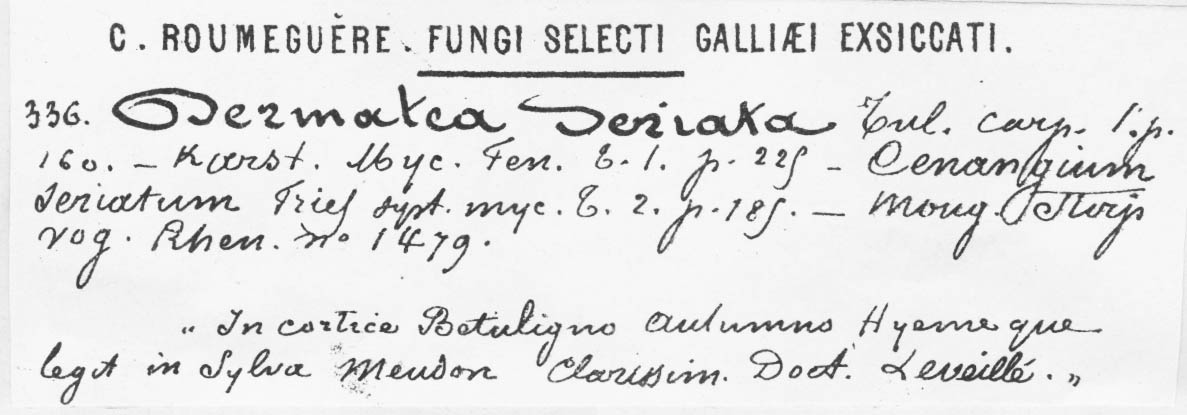 C. ROUMEGUÈRE. FUNGI SELECTI GALLIÆI EXSICCATI.
336. Dermatea Seriata Tul. carp. 1. p.
160. — Karst. Myc. Fen. T. 1. p. 225 — Cenangium
Seriatum Fries syst. myc. T. 2. p. 185. — Moug. Stirp
vog. Rhen. no 1479.
„ In cortice Betuligno autumno Hyemeque
legit in Sylva Meudon Clarissim. Doct. Leveillé. „